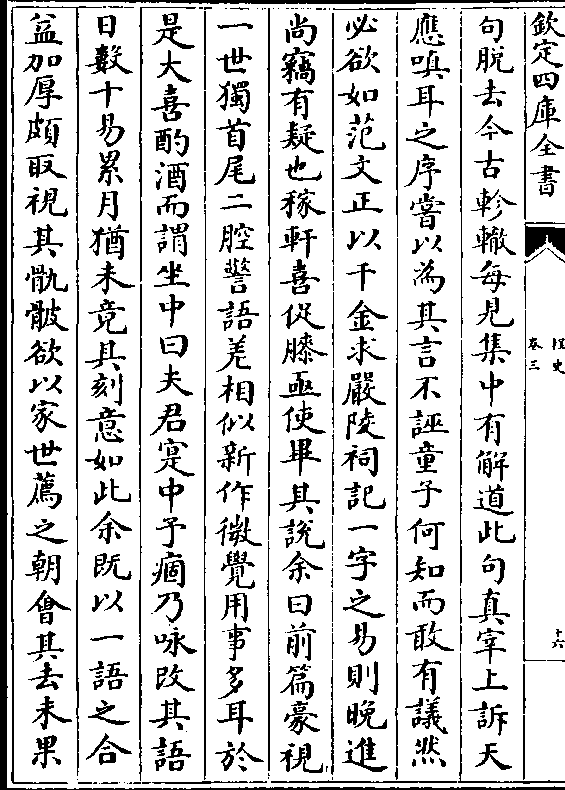 欽定四庫全書
桯史
卷三
十六
句脱去今古軫轍每見集中有解道此句真宰上訴天
應嗔耳之序嘗以為其言不誣童子何知而敢有議然
必欲如范文正以千金求嚴陵祠記一字之易則晚進
尚竊有疑也稼軒喜促膝亟使畢其說余曰前篇豪視
一世獨首尾二腔警語差相似新作微覺用事多耳於
是大喜酌酒而謂坐中曰夫君寔中予痼乃咏改其語
日數十易累月猶未竟其刻意如此余既以一語之合
益加厚頗取視其骫骳欲以家世薦之朝會其去未果